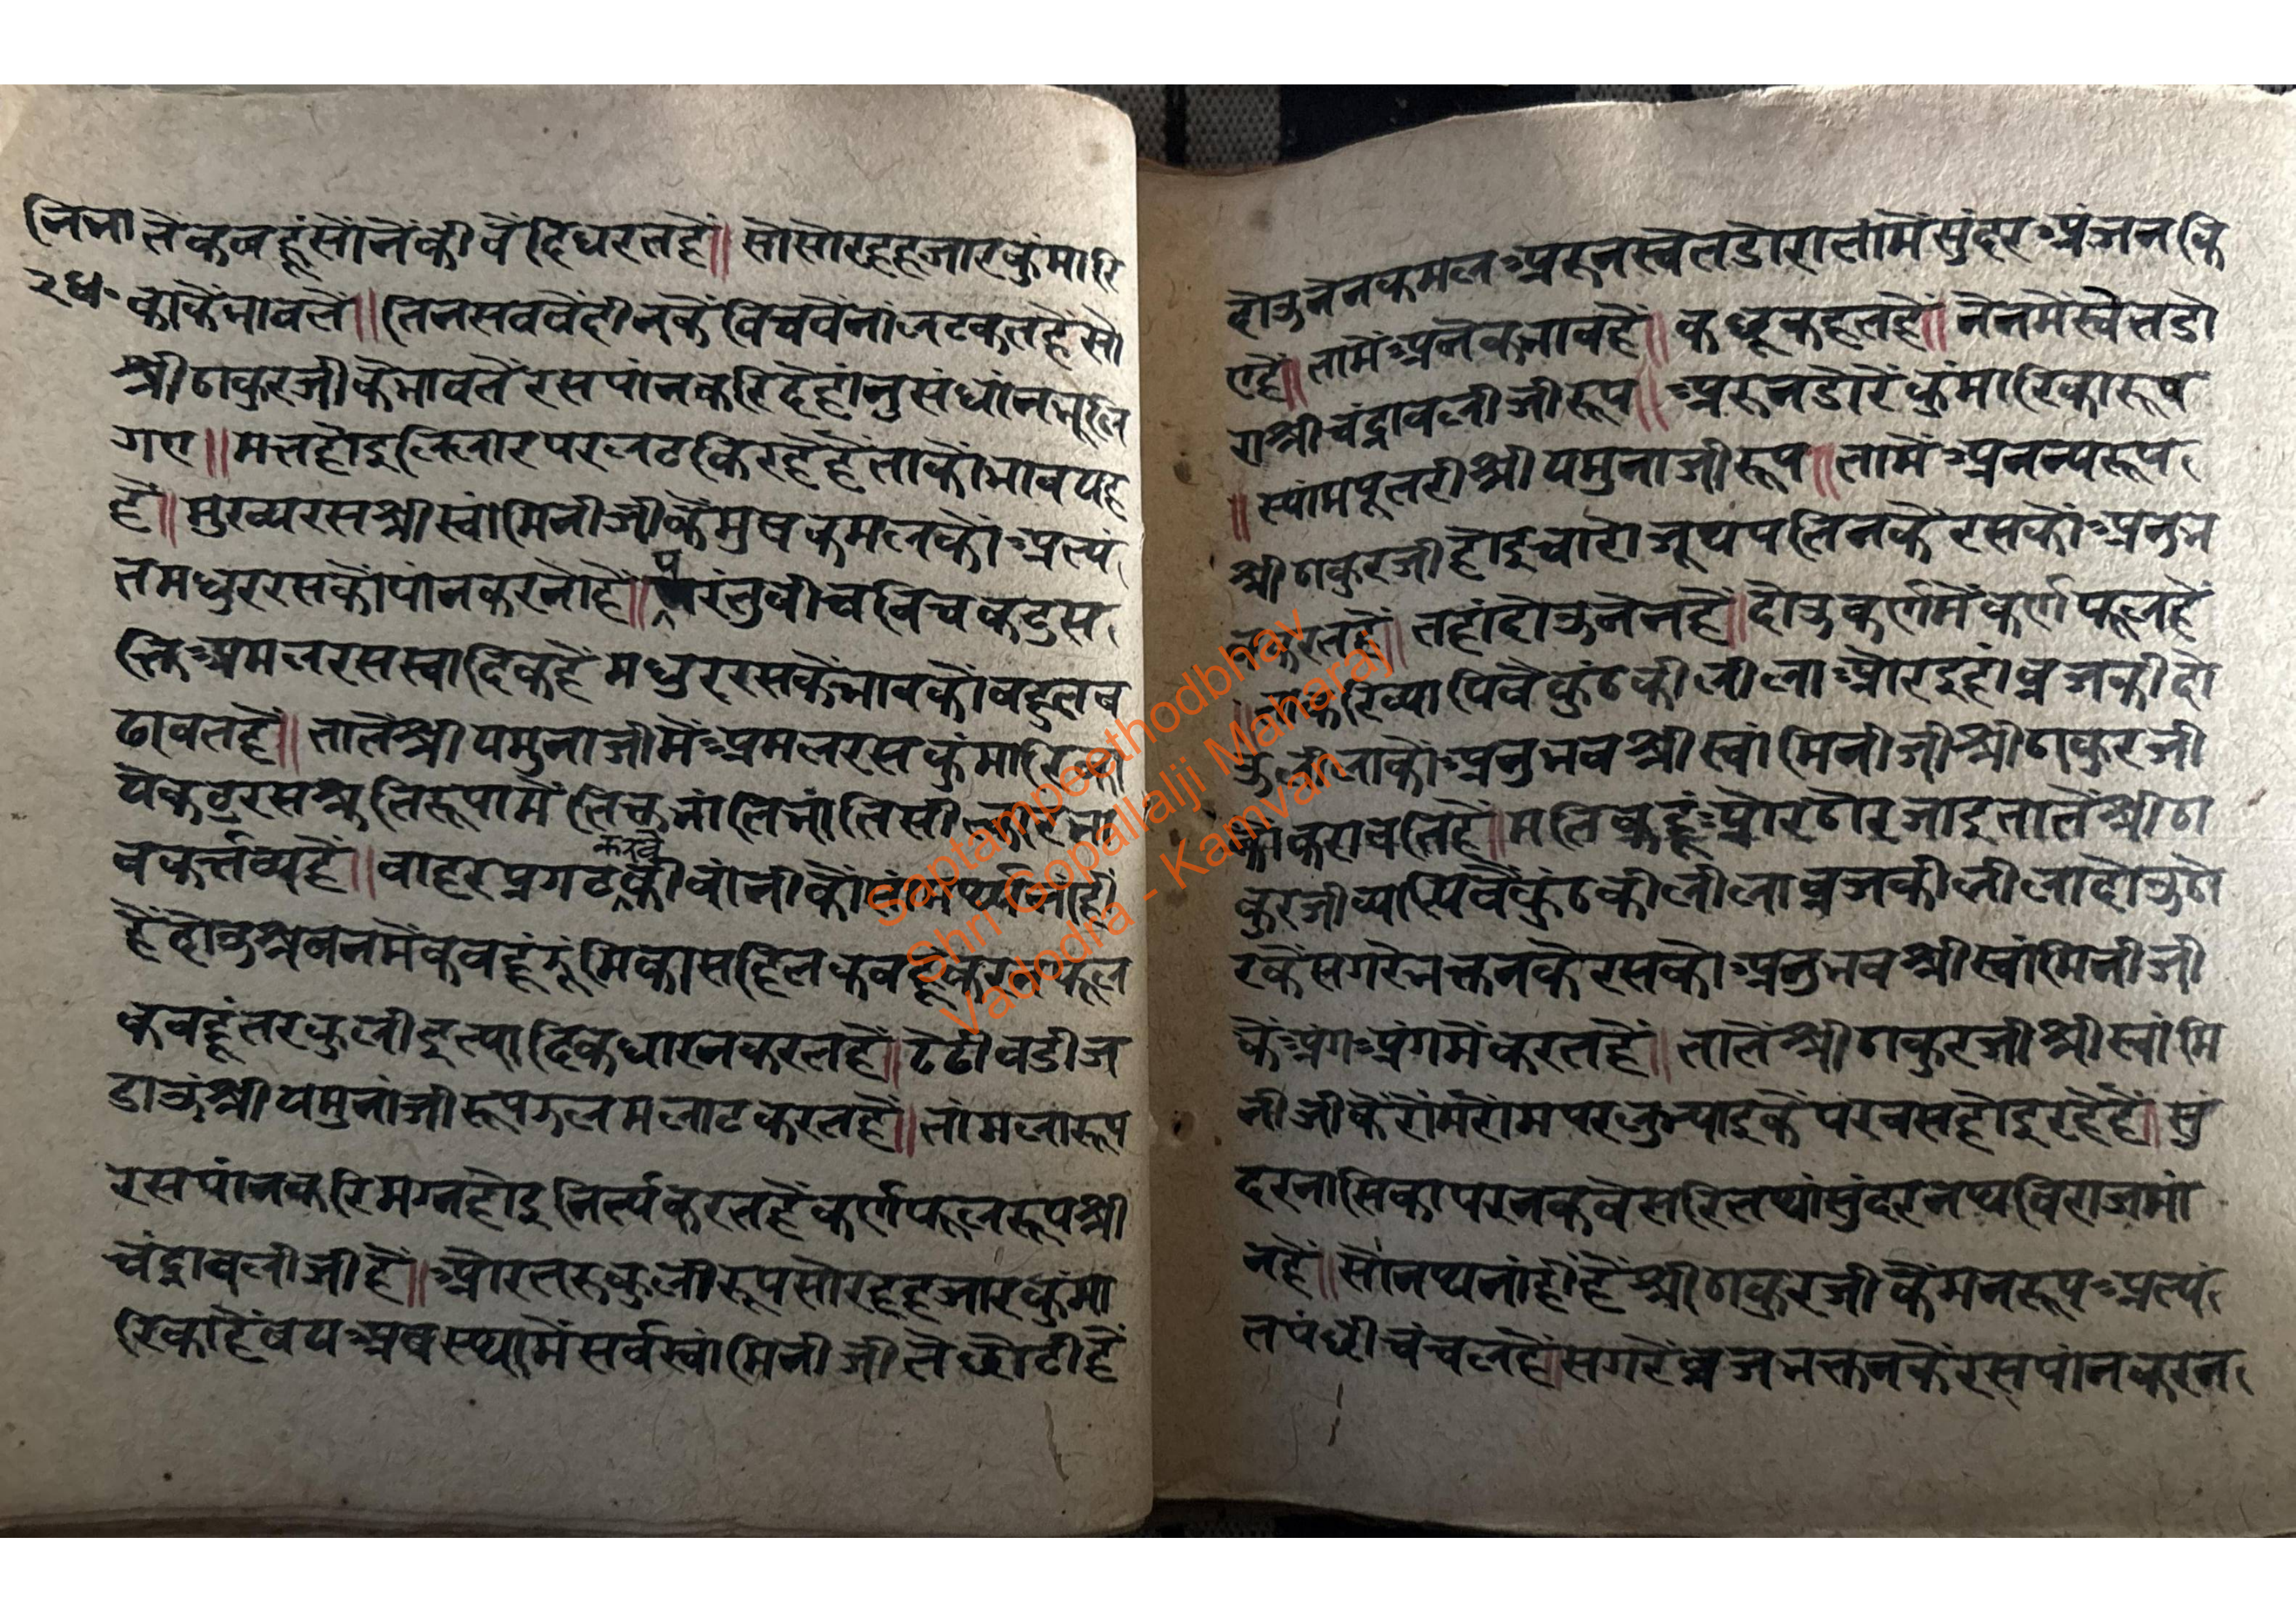 नि॰भा तेकबहूंसोंनेंकी बैंदिधरतहैं॥ सोसोरहहजारकुंमारि
२४॰ काकेंभावतें॥ तिनसबबेंदीनकें बिचबेंनांलटकतहैंसो
श्रीठाकुरजीकेभावतेंरसपांनकरिदेहांनुसंधांनभूलि
गए॥ मत्तहोइलिलारपरलटकिरहेहेंताकोभावयह
हैं॥ मुख्यरसश्रीस्वांमिनीजीकेंमुषकमलकोंअत्यं
तमधुररसकोंपांनकरनोहें॥ परंतुबीचबिचकटुस
क्तिअमलरसस्वादिकहैंमधुररसकेंभावकोंबहुतब
ढावतहें॥ तातेंश्रीयमुनाजीमेंअमलरसकुंमारिका
येकटुरसश्रुतिरूपामेंतिक्त
बकर्त्तव्यहैं॥ बाहरप्रगटकरवेकीबांनीकों
हेंदोऊश्रवनमेंकबहूंझूंमिकासहितकबहूंकरनफूल
कबहूंतरकुलीइत्यादिकधारनकरतहैं॥ टेटीबडीज
डाऊंश्रीयमुनांजीरूपझलमलाटकरतहैं॥ तांमलारूप
रसपांनकरिमग्नहोइनिर्त्यकरतहेंकर्णफूलरूपश्री
चंद्रावलीजीहें॥ औरतरुकुलीरूपसोरहहजारकुंमा
रिकाहेंबयअबस्थामेंसर्वस्वांमिनीजीतेंछोटीहें
दोऊनेनकमलअरुनस्वेतडोरातांमेंसुंदरअंजनकि
एहें॥ तामेंअनेकभावहें॥ कछूकहतहें॥ नेनमेंस्वेतडो
राश्रीचंद्रावलीजीरूप॥ अरुनडोरेंकुंमारिकारूप
॥ स्यांमपूतरीश्रीयमुनाजीरूप॥ तामेंअनन्यरूप
श्रीठाकुरजीहोइचारोजूथपतिनकेंरसकोंअनुभ
वकरतहें॥ तहांदोऊनेनहें॥ दोऊकर्णमेंकर्णफूलहें
॥ ताकरिव्यापिवैकुंठकीलीलाऔरइहांब्रजकीदो
ऊलीलाकोंअनुभवश्रीस्वांमिनीजीश्रीठाकुरजी
कोकरावतिहें॥ मतिकहूंऔरठोरजाइतातेंश्रीठा
कुरजीव्यापिवैकुंठकीलीलाब्रजकीलीलादोऊठो
रकेंसगरेभक्तनकेरसकोअनुभवश्रीस्वांमिनीजी
केंअंगअंगमेंकरतहें॥ तातेंश्रीठाकुरजीश्रीस्वांमि
नीजीकेंरोंमरोंमपरलुभ्याइकेंपरबसहोइरहेहें॥ सुं
दरनासिकापरनकबेसरितथांसुंदरनथबिराजमां
नहें॥ सोनथनांहींहेंश्रीठाकुरजीकेंमनरूपअत्यं
तपंछीचंचलहें।सगरेंब्रजभक्तनकेंरसपांनकरन